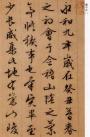 永和九年歲在癸丑暮春
之初會于會稽山陰之蘭
亭脩稧事也羣賢畢至
少長咸集此地有崇山